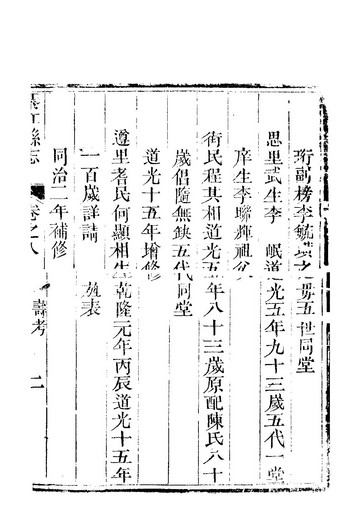 珩副榜李毓璜之母五世同堂
思里武生李岷道光五年九十三歲五代一堂
庠生李聯輝祖父
術民程其相道光五年八十三歲原配陳氏八十
歲倡隨無缺五代同堂
道光十五年增修
遵里耆民何顯相生乾隆元年丙辰道光十五年
一百歲詳請 旌表
同治二年補修
綦江縣志 卷之八 壽考 二